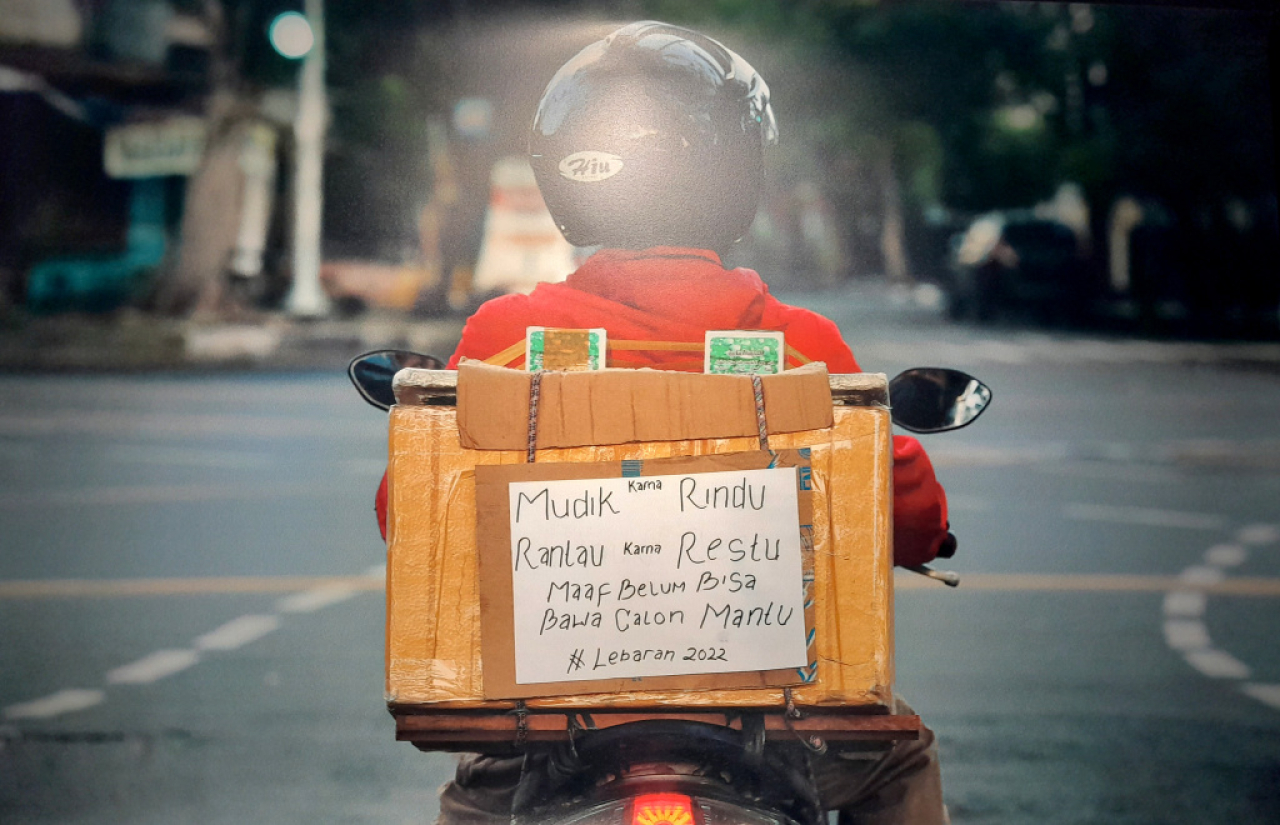 Hiu
Mudik Karna Rindu
Rantau Karna Restu
Maaf Belum Bisa
Bawa Calon Mantu
# Lebaran 2022